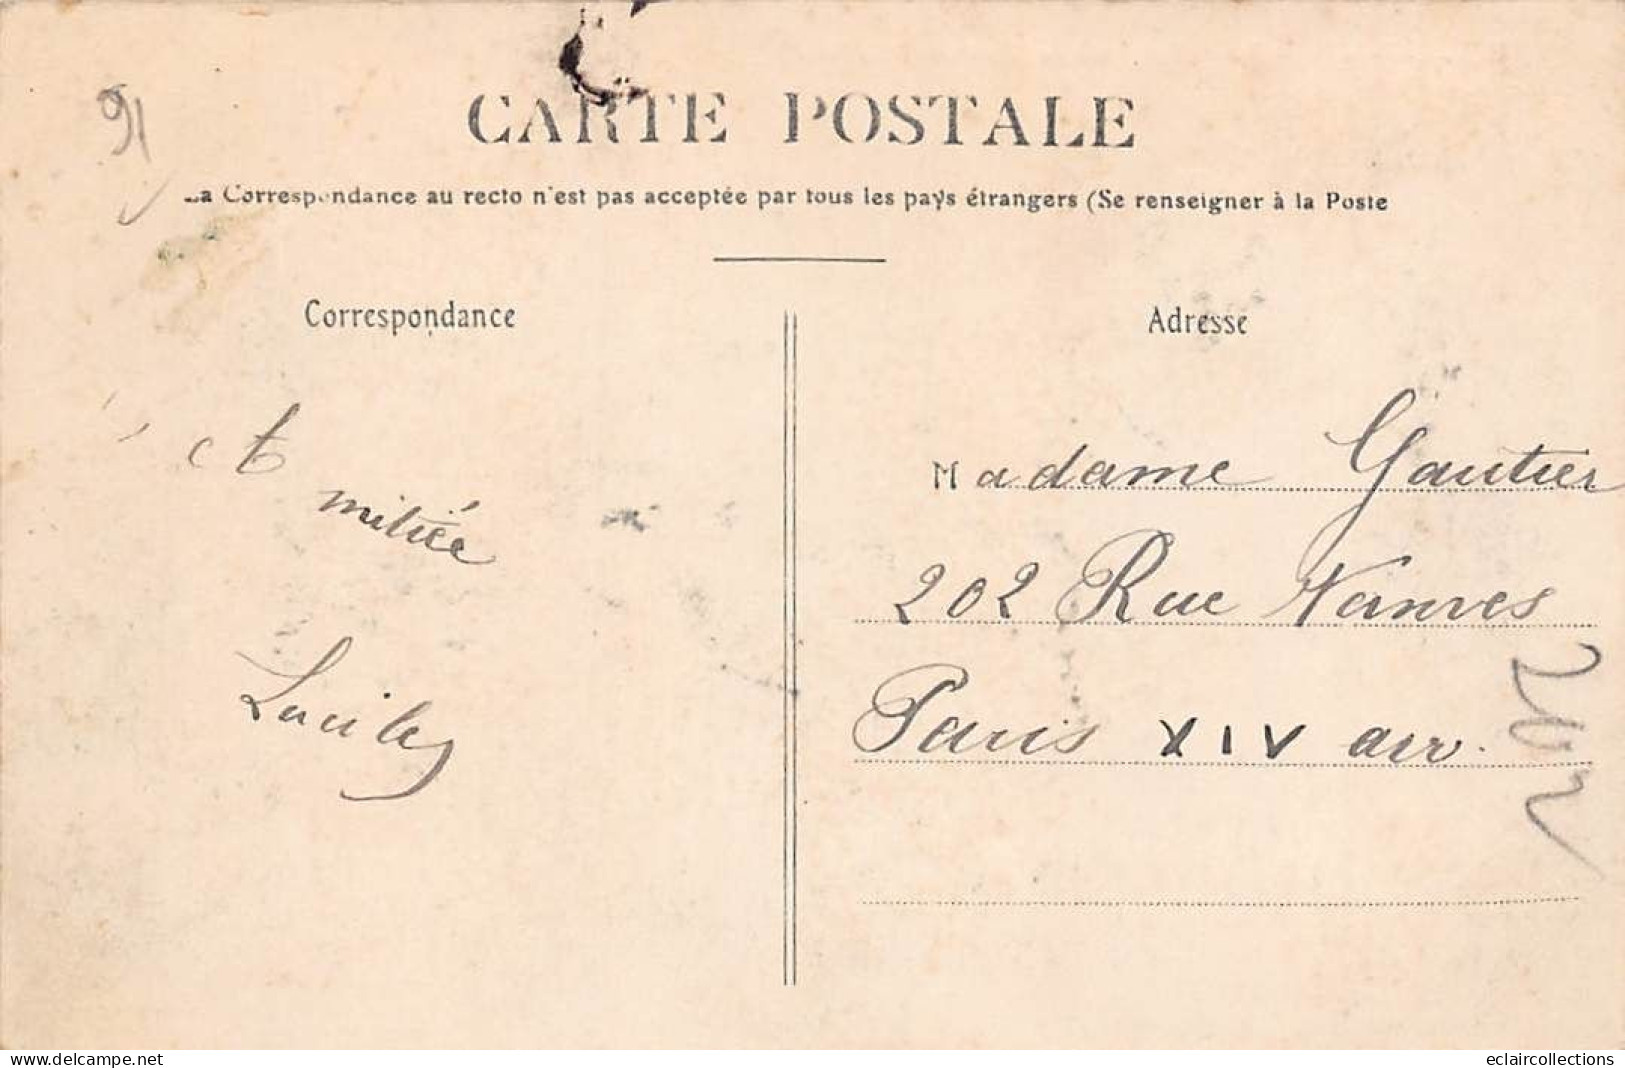 91
CARTE POSTALE
La Correspondance au recto n'est pas acceptée par tous les pays étrangers (Se renseigner à la Poste
Correspondance
Adresse
mitiée
Madame Gautier
202 Rue Vanves
Paris XIV arr.
202
www.delcampe.net
eclaircollections